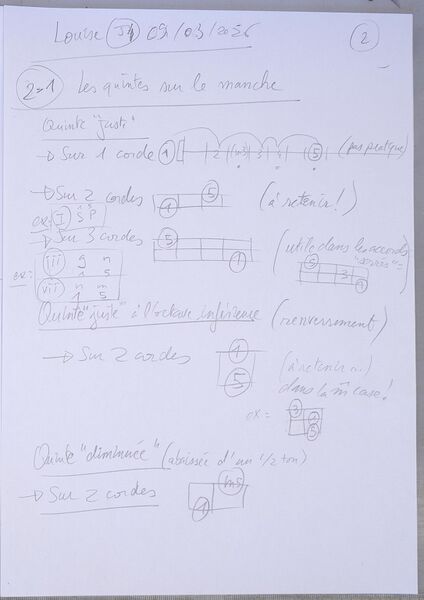 Louise J4 09/03/2026
2
2=1 Les quintes sur le manche
Quinte "juste"
→ Sur 1 corde 1 2 (m3) 3 4 5 (pas pratique)
→ Sur 2 cordes 1 5 (à retenir!)
ex: I S P
→ Sur 3 cordes 5 1 (utile dans les accords
ex: iii g n 5 3 1
vii n m
1 5
Quinte "juste" à l'octave inférieure (renversement)
→ Sur 2 cordes 1 5 (à retenir
dans la m̂ case!
ex = 3 1 5
Quinte "diminuée" (abaissée d'un 1/2 ton)
→ Sur 2 cordes 1 m5